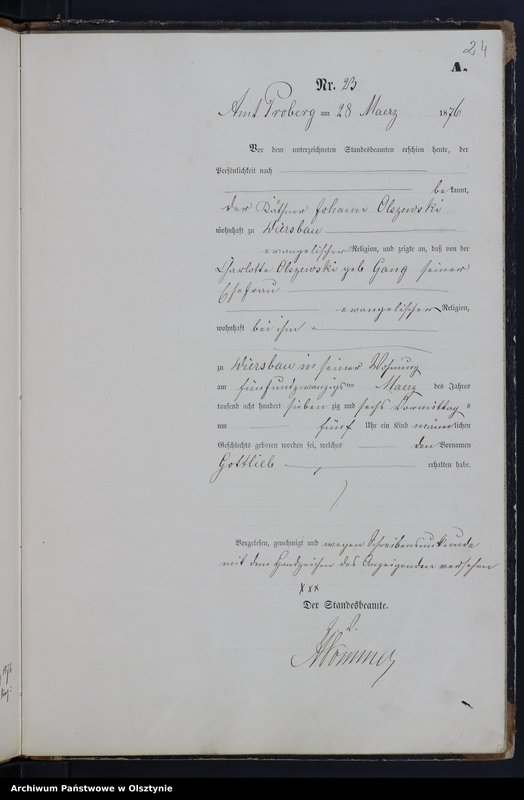 24
A.
Nr. 23
Amt Proberg am 28 Maerz 1876
Vor dem unterzeichneten Standesbeamten erschien heute, der
Persönlichkeit nach
bekannt,
der Käthner Johann Olszewski
wohnhaft zu Wiersbau
evangelischer Religion, und zeigte an, daß von der
Charlotte Olszewski geb Gang seiner
Ehefrau
evangelischer Religion,
wohnhaft bei ihm
zu Wiersbau in seiner Wohnung
am fünfundzwanzigsten Maerz des Jahres
tausend acht hundert siebenzig und sechs Vormittags
um fünf Uhr ein Kind männlichen
Geschlechts geboren worden sei, welches den Vornamen
Gottlieb erhalten habe.
Vorgelesen, genehmigt und wegen Schreibensunkunde
mit dem Handzeichen des Anzeigenden versehen
xxx
Der Standesbeamte.
Archiwum Państwowe w Olsztynie